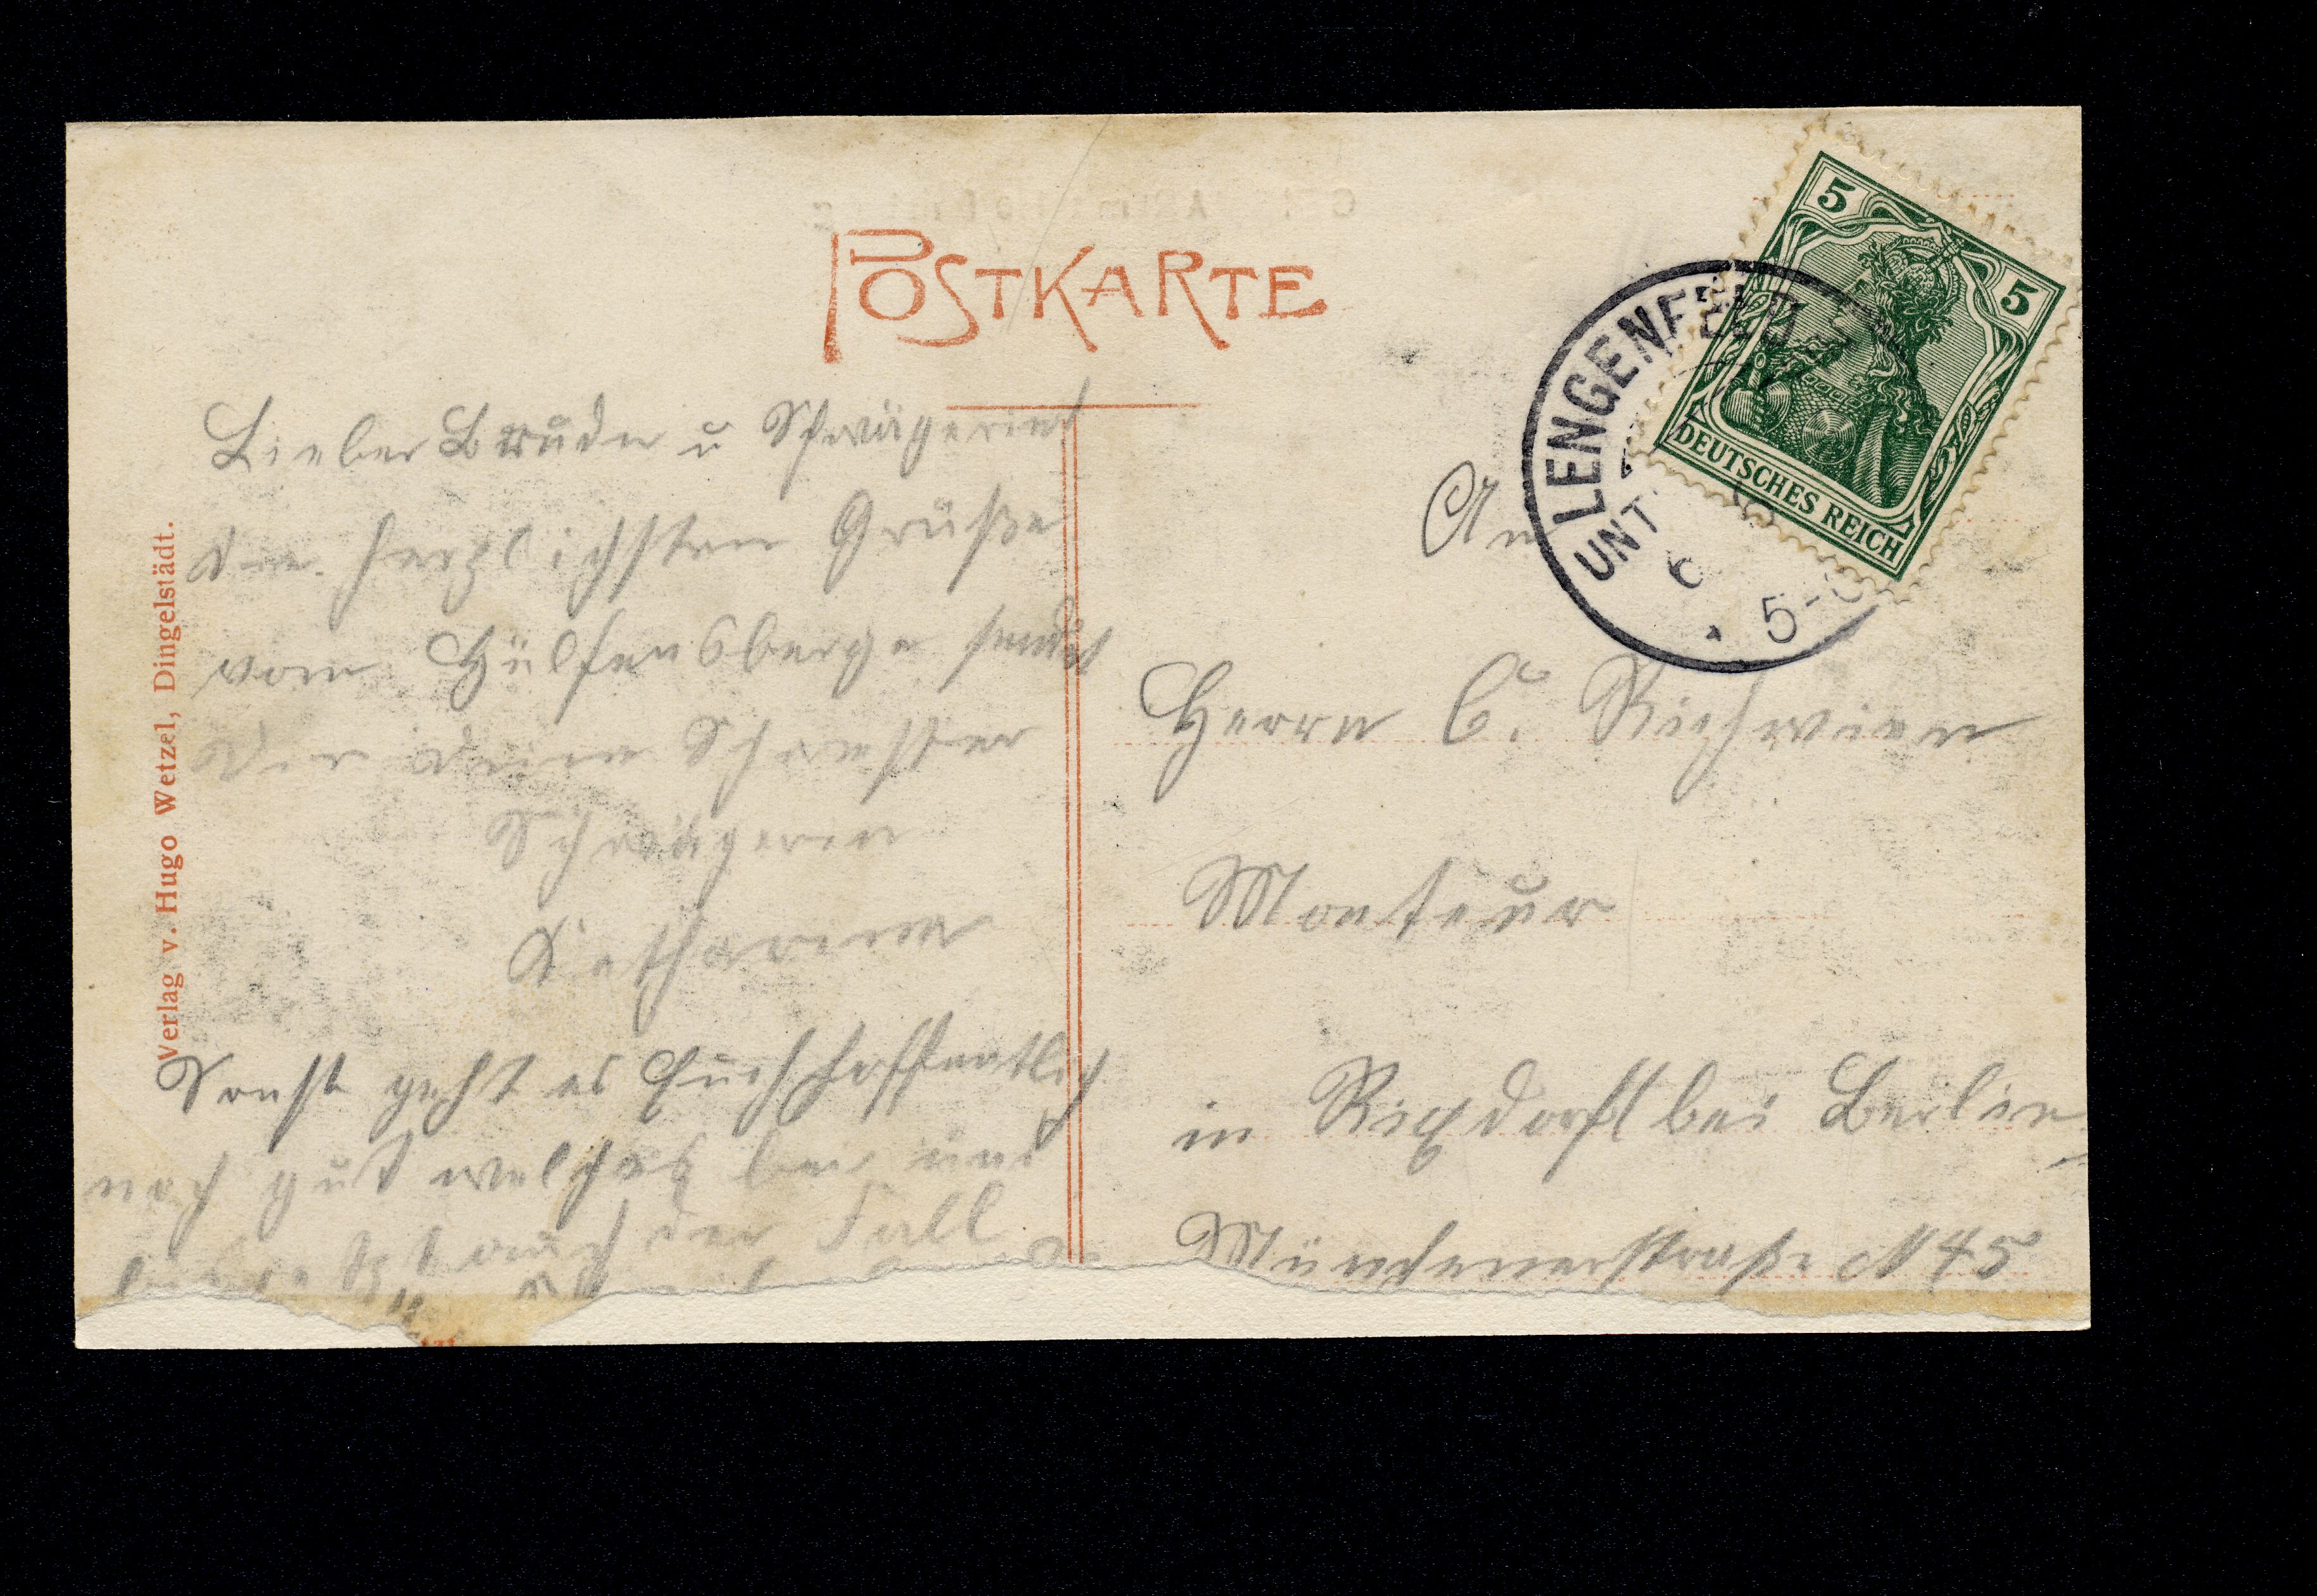 POSTKARTE
Lieber Bruder u Schwägerin
die herzlichsten Grüße
vom Hülfensberge sendet
Dir deine Schwester
Schwägerin
Katharina
Sonst geht es Euch hoffentlich
noch gut welches bei uns
auch der Fall
Verlag v. Hugo Wetzel, Dingelstädt.
5 5
DEUTSCHES REICH
LENGENFELD
UNT
6
5-
An
Herrn C. Richwien
Monteur
in Rixdorf bei Berlin
Münchenerstraße N 45